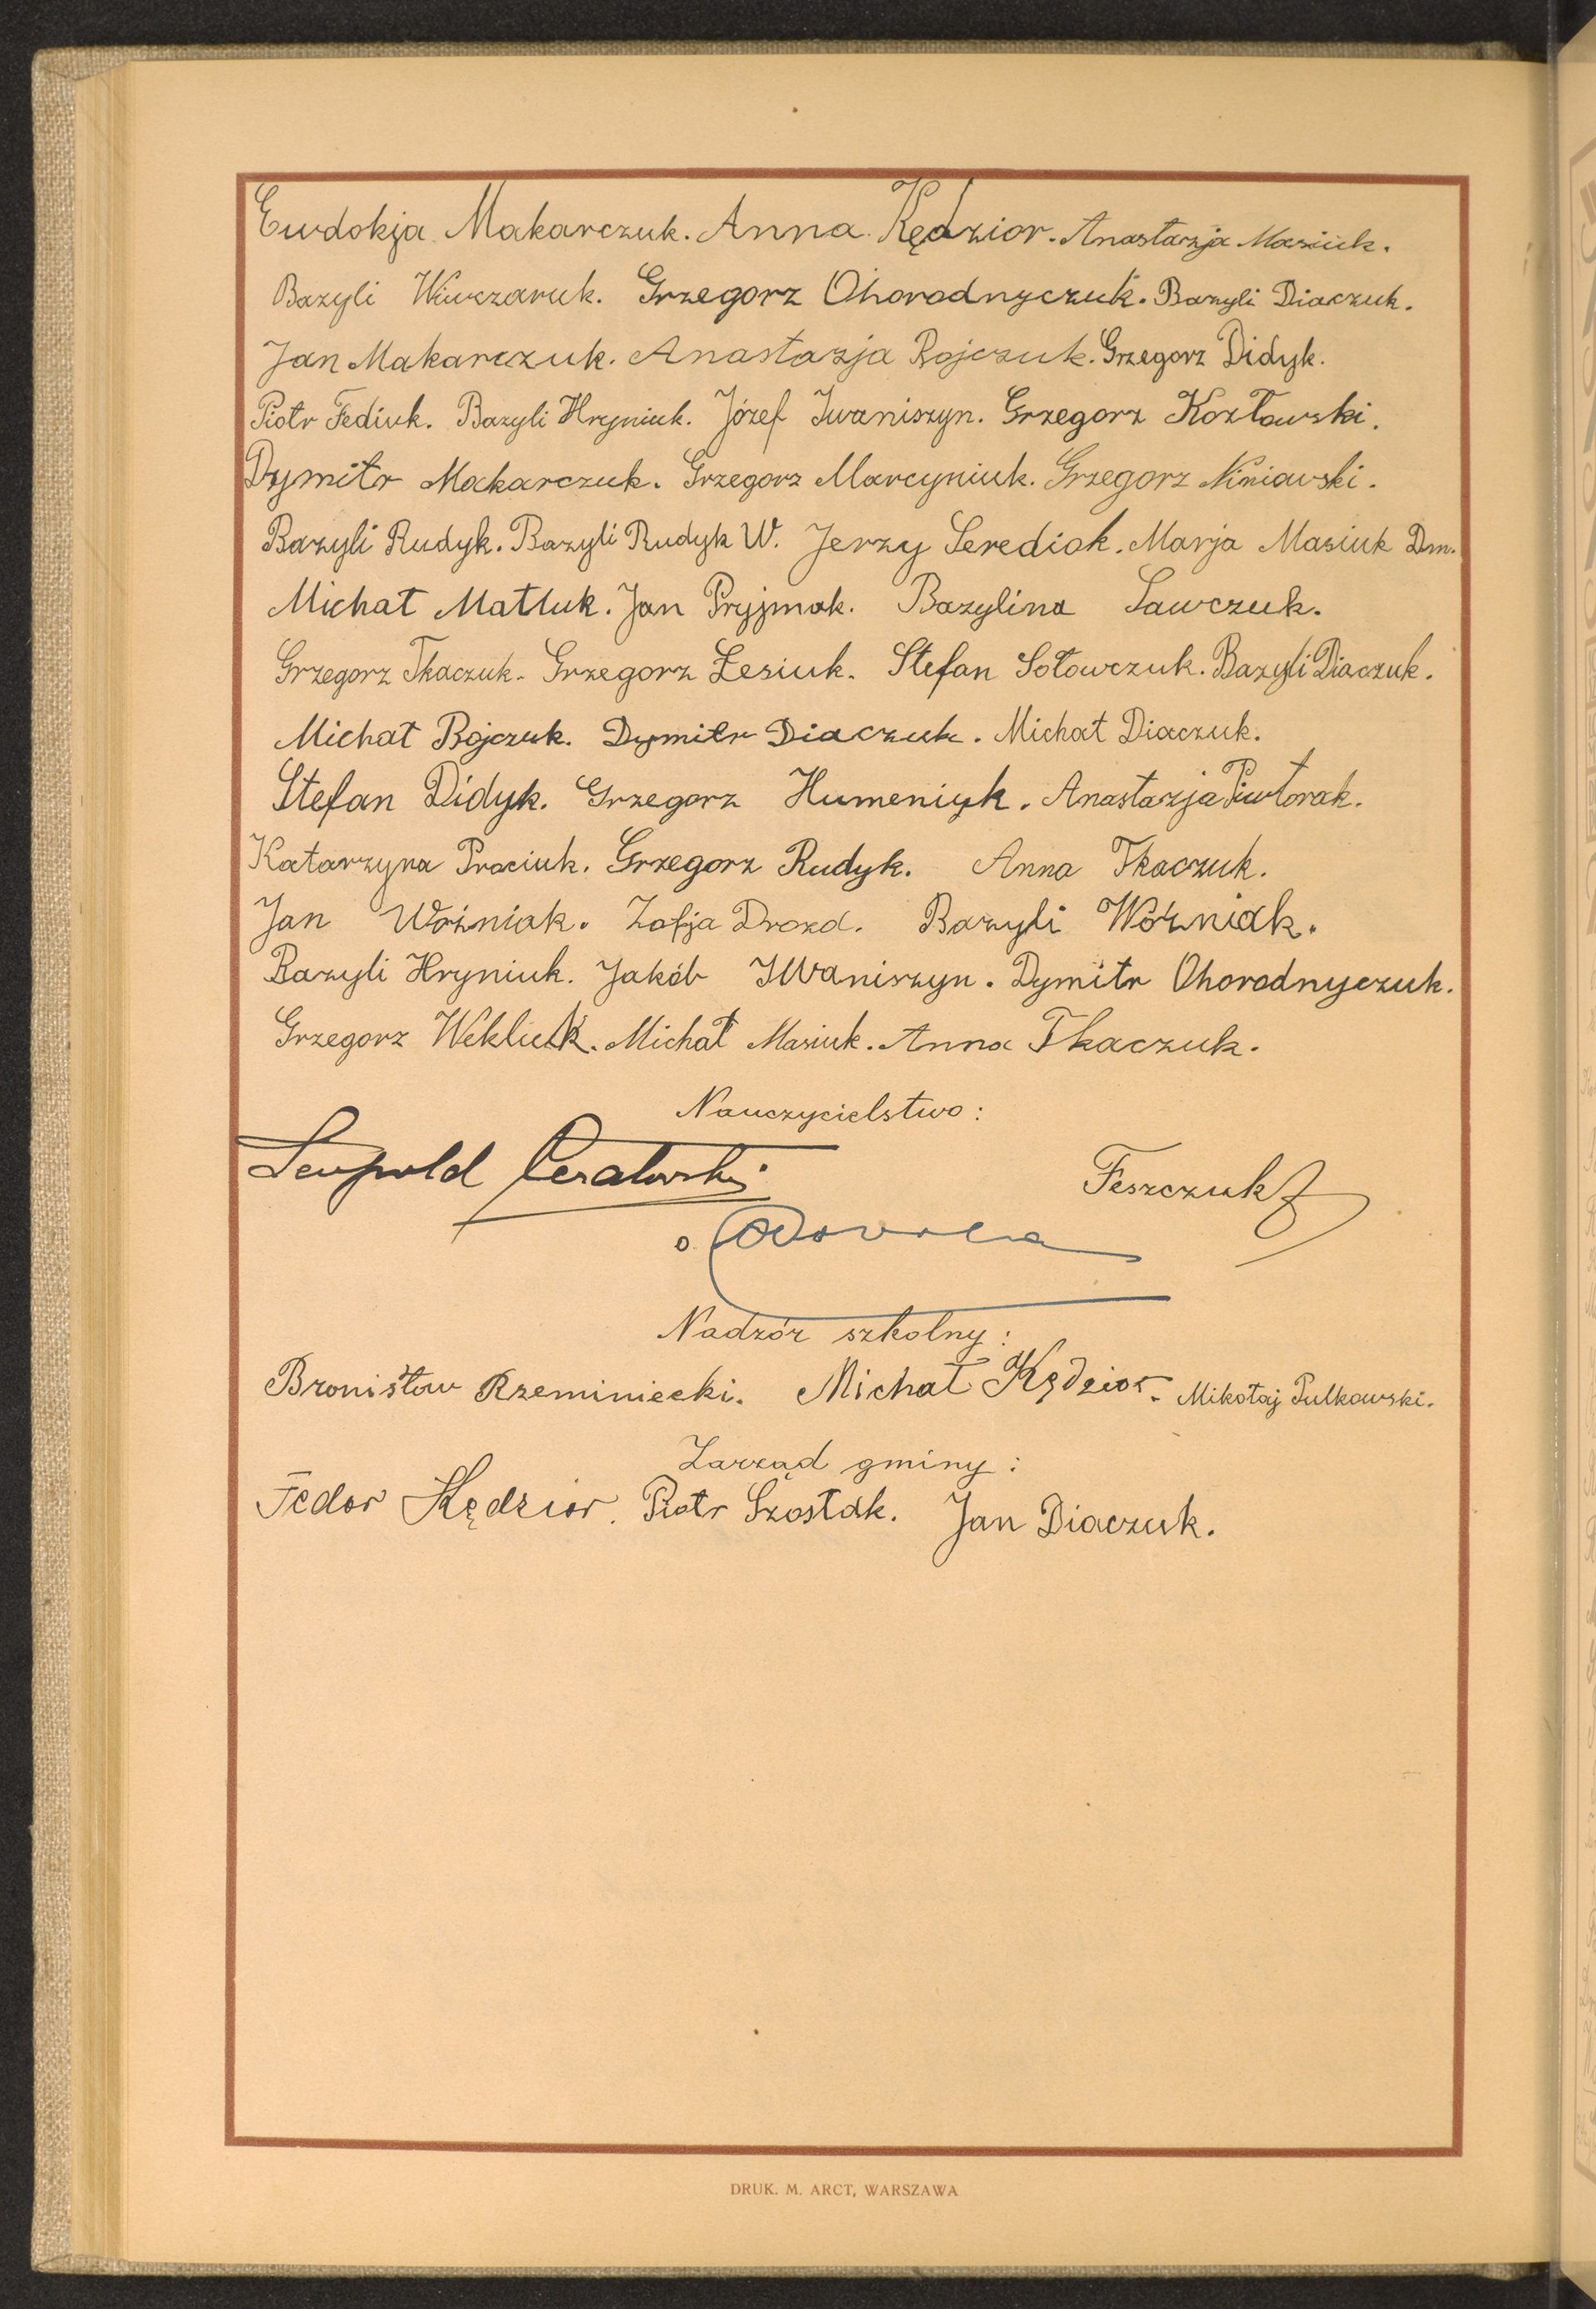 Ewdokja Makarczuk. Anna Kędzior. Anastazja Masiuk.
Bazyli Wiwczaruk. Grzegorz Ohorodnyczuk. Bazyli Diaczuk.
Jan Makarczuk. Anastazja Bojczuk. Grzegorz Didyk.
Piotr Fediuk. Bazyli Hryniuk. Józef Iwaniszyn. Grzegorz Kozłowski.
Dymitr Makarczuk. Grzegorz Marcyniuk. Grzegorz Niniawski.
Bazyli Rudyk. Bazyli Rudyk W. Jerzy Serediak. Marja Masiuk Dm.
Michał Matluk. Jan Pryjmak. Bazylina Sawczuk.
Grzegorz Tkaczuk. Grzegorz Łesiuk. Stefan Sołowczuk. Bazyli Diaczuk.
Michał Bojczuk. Dymitr Diaczuk. Michał Diaczuk.
Stefan Didyk. Grzegorz Humeniuk. Anastazja Piwtorak.
Katarzyna Prociuk. Grzegorz Rudyk. Anna Tkaczuk.
Jan Woźniak. Zofja Drozd. Bazyli Woźniak.
Bazyli Hryniuk. Jakób Iwaniszyn. Dymitr Ohorodnyczuk.
Grzegorz Wekliuk. Michał Masiuk. Anna Tkaczuk.
Nauczycielstwo:
Leopold
Feszczuk
o.
Nadzór szkolny:
Bronisław Rzeminiecki. Michał Kędzior. Mikołaj Pulkowski.
Zarząd gminy:
Fedor Kędzior. Piotr Szostak. Jan Diaczuk.
DRUK. M. ARCT, WARSZAWA